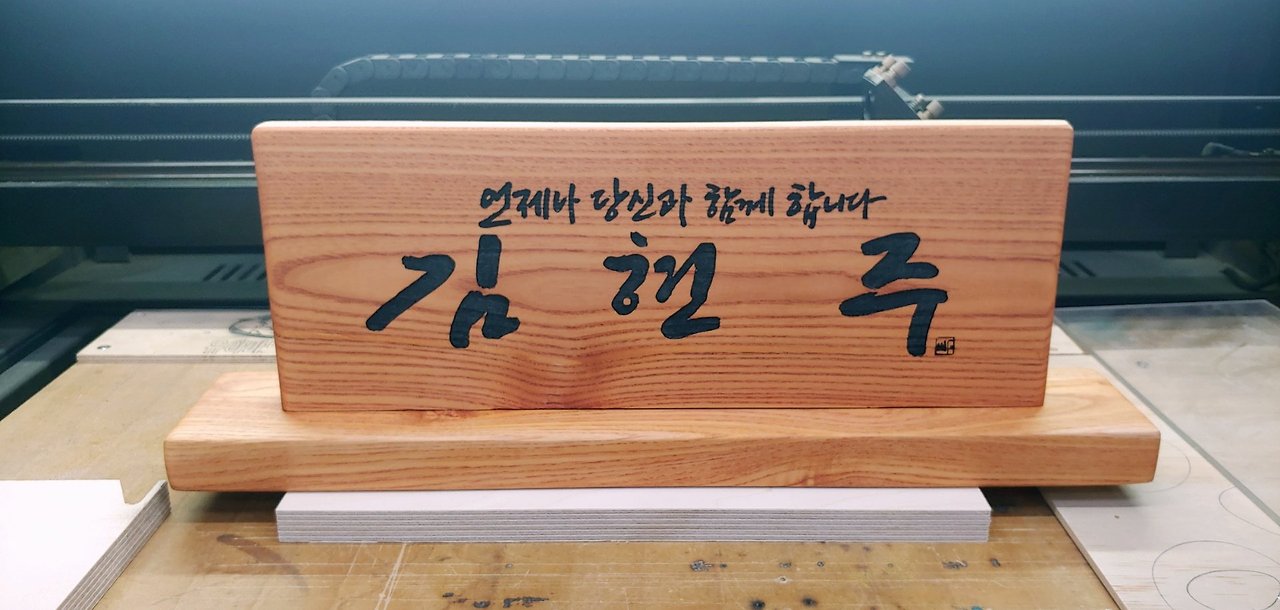 언제나 당신과 함께 합니다
김현주